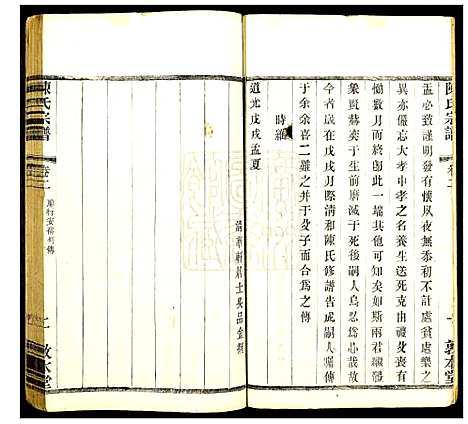 陳氏宗譜
卷二
敦本堂
孟必致謹明發夙夜無忝利不計處貧處樂之
異亦僅忘大孝中孝之名養生送死克由禮而
慟數月而歿即此一端其他可知矣如斯雨君
象賢赫奕于生前磨滅于死後嗣人烏忍為心哉故
今者歲在戊戌月際清和陳氏修譜告成嗣人囑傳
于余余喜二難之并于及子而合為之傳
時維
道光戊戌孟夏
清
軒居士
品金
陳氏宗譜
卷二
傳
二
敦本堂